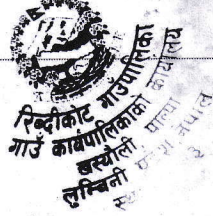 रिब्दीकोट गाउँपालिका
गाउँ कार्यपालिकाको कार्यालय
बस्यौली, पाल्पा
लुम्बिनी नेपाल